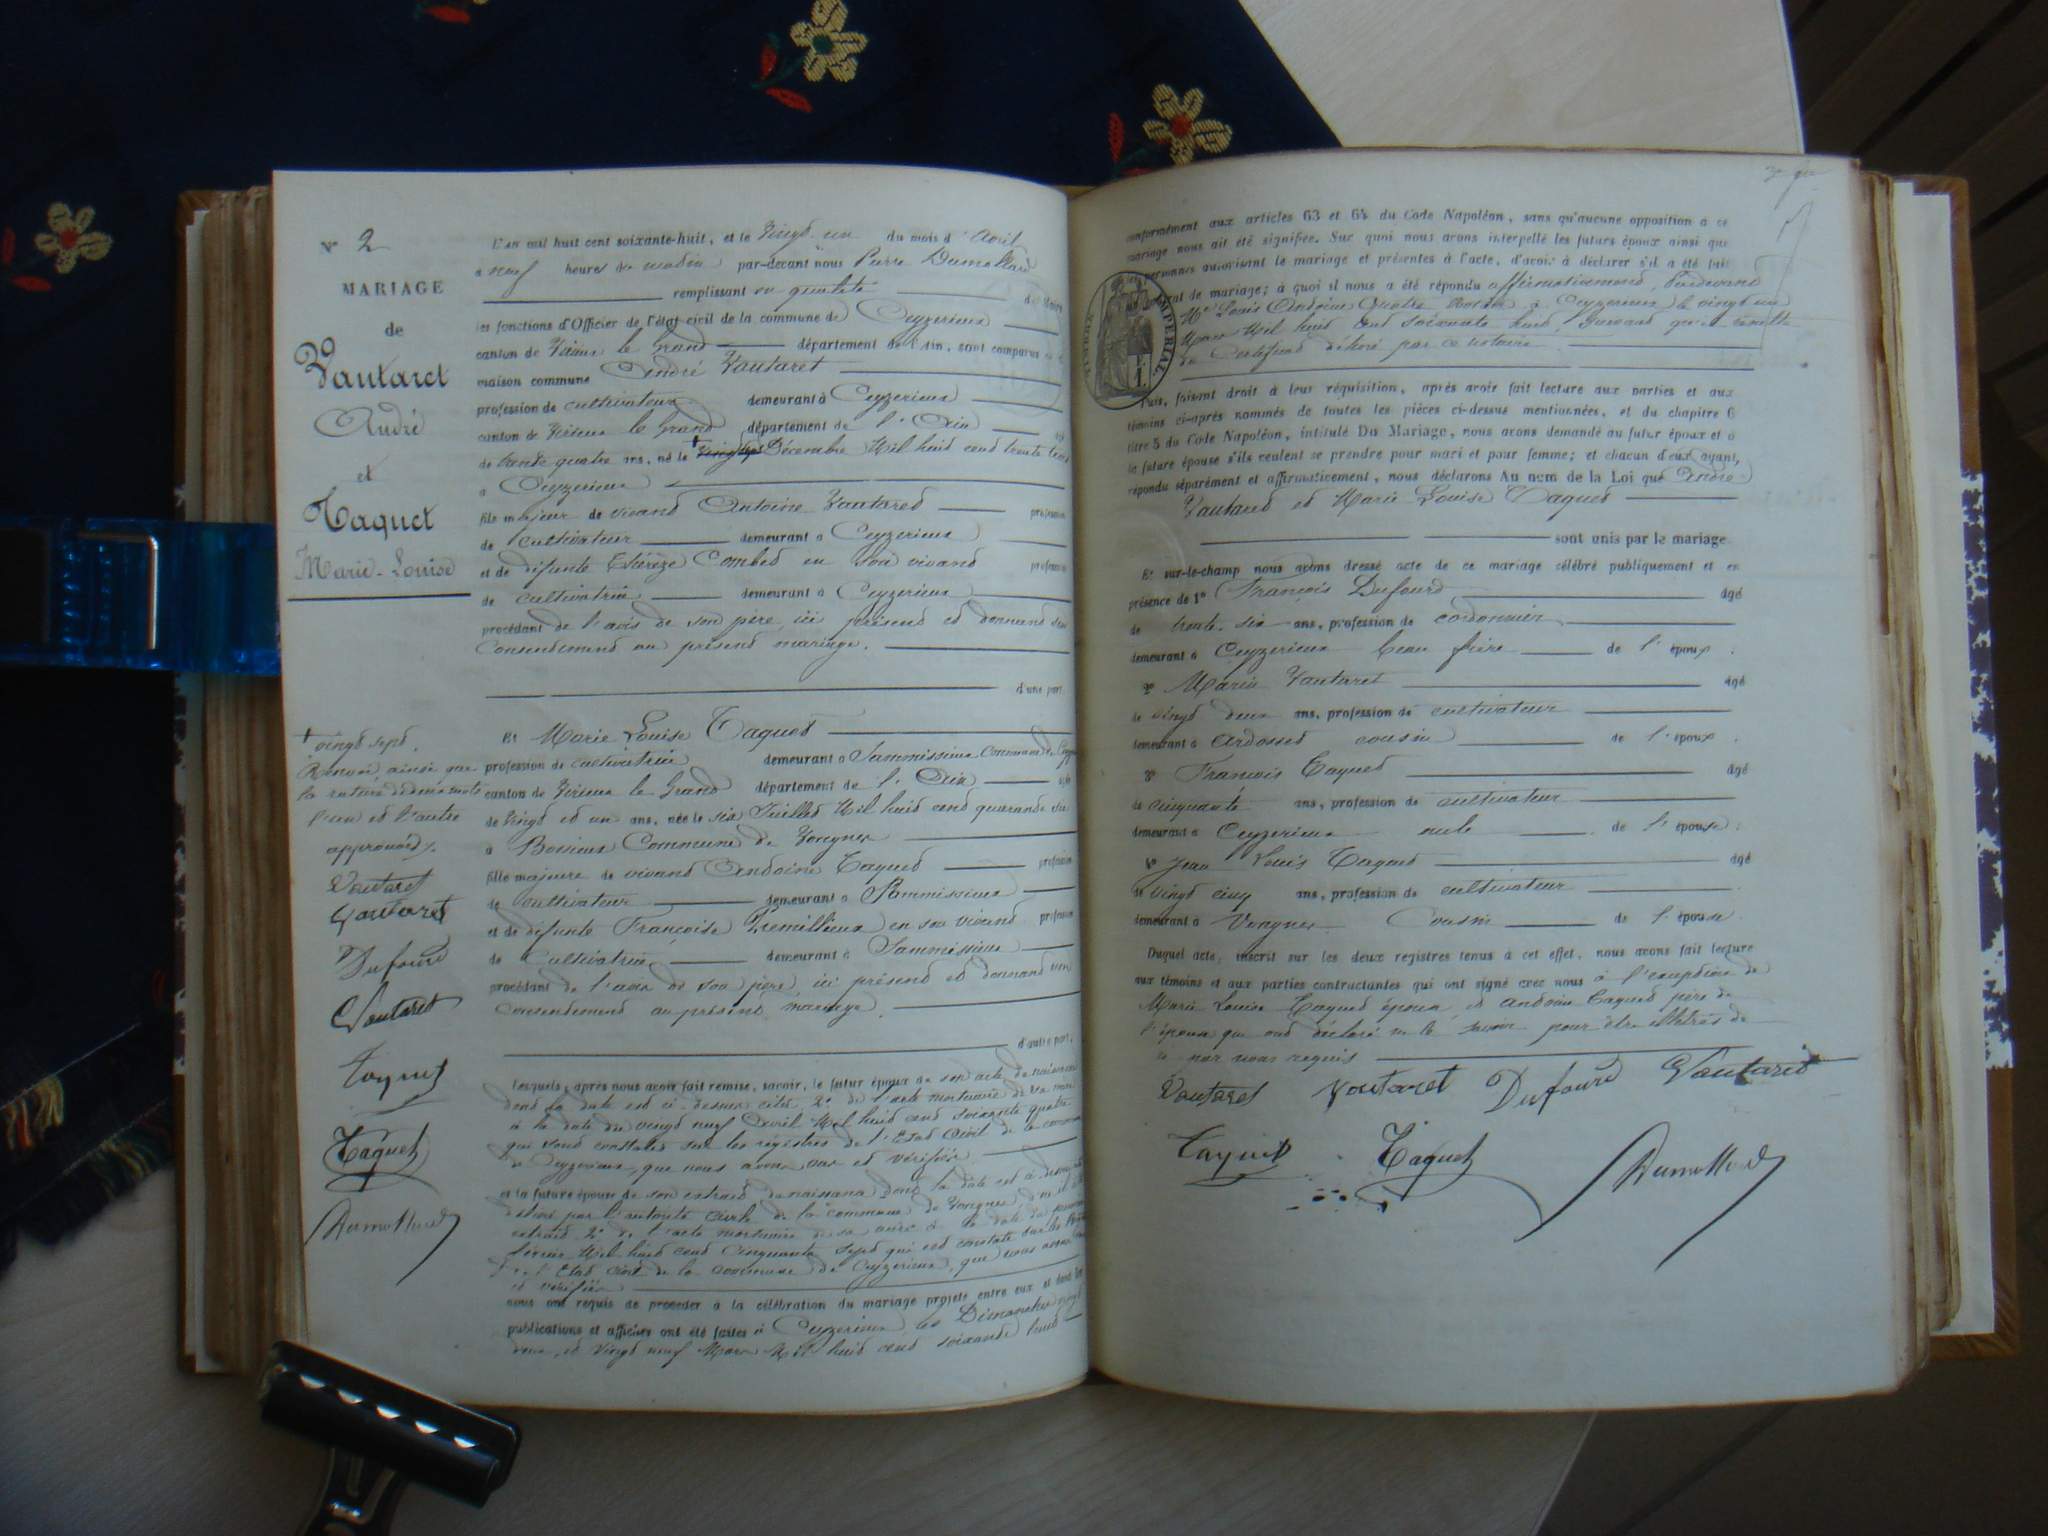 N° 2
MARIAGE
de
Vautaret
André
et
Taquet
Marie-Louise
L'an mil huit cent soixante-huit, et le vingt un du mois d'avril
à neuf heures du matin par-devant nous Pierre Dumollard
remplissant en qualité
les fonctions d'Officier de l'état civil de la commune de Ceyzerieux
canton de Virieu le Grand département de l'Ain, sont comparus
maison commune André Vautaret
profession de cultivateur demeurant à Ceyzerieux
canton de Virieu le Grand département de l'Ain
de trente quatre ans, né le Décembre Mil huit cent trente trois
à Ceyzerieux
fils majeur de vivant Antoine Vautaret profession
de cultivateur demeurant à Ceyzerieux
et de défunte Thérèze Combet en son vivant profession
de cultivatrice demeurant à Ceyzerieux
procédant de l'avis de son père, ici présent et donnant son
consentement au présent mariage.
d'une part
Et Marie Louise Taquet
profession de cultivatrice demeurant à Sammissieux Commune de
canton de Virieu le Grand département de l'Ain
de vingt et un ans, née le six Juillet Mil huit cent quarante six
à Bossieux Commune de Vongnes
fille majeure de vivant Antoine Taquet profession
de cultivateur demeurant à Sammissieux
et de défunte Françoise Tremillieux en son vivant profession
de cultivatrice demeurant à Sammissieux
procédant de l'avis de son père, ici présent et donnant son
consentement au présent mariage.
d'autre part,
lesquels, après nous avoir fait remise, savoir, le futur époux de son acte de naissance
dont la date est ci-dessus citée, 2° de l'acte mortuaire de sa mère
à la date du vingt neuf Avril Mil huit cent soixante quatre
qui sont constatés sur les registres de l'Etat Civil de la commune
de Ceyzerieux, que nous avons vus et vérifiés
et la future épouse de son extrait de naissance dont la date est ci-dessus
délivré par l'autorité civile de la commune de Vongnes
extrait 2° de l'acte mortuaire de sa mère à la date du
février Mil huit cent cinquante sept qui est constaté sur les
de l'Etat Civil de la commune de Ceyzerieux, que nous avons
et vérifiés
nous ont requis de procéder à la célébration du mariage projeté entre eux et dont les
publications et affiches ont été faites à Ceyzerieux les Dimanches vingt
deux, et vingt neuf Mars Mil huit cent soixante huit
vingt sept.
Renvoi, ainsi que
la rature de deux mots
l'un et l'autre
approuvés.
Vautaret
Vautaret
Dufourd
Vautaret
Taquet
Taquet
Dumollard
conformément aux articles 63 et 64 du Code Napoléon, sans qu'aucune opposition à ce
mariage nous ait été signifiée. Sur quoi nous avons interpellé les futurs époux ainsi que
personnes autorisant le mariage et présentes à l'acte, d'avoir à déclarer s'il a été fait
contrat de mariage; à quoi il nous a été répondu affirmativement, pardevant
Me Louis Antoine notaire à Ceyzerieux le vingt un
Mars Mil huit cent soixante huit, suivant que
de Certificat délivré par ce notaire.
TIMBRE IMPÉRIAL
Puis, faisant droit à leur réquisition, après avoir fait lecture aux parties et aux
témoins ci-après nommés de toutes les pièces ci-dessus mentionnées, et du chapitre 6
titre 5 du Code Napoléon, intitulé Du Mariage, nous avons demandé au futur époux et à
la future épouse s'ils veulent se prendre pour mari et pour femme; et chacun d'eux ayant,
répondu séparément et affirmativement, nous déclarons Au nom de la Loi que André
Vautaret et Marie Louise Taquet
sont unis par le mariage
Et sur-le-champ nous avons dressé acte de ce mariage célébré publiquement et en
présence de 1° François Dufourd âgé
de trente-six ans, profession de cordonnier
demeurant à Ceyzerieux beau frère de l'époux;
2° Marin Vautaret âgé
de vingt deux ans, profession de cultivateur
demeurant à Ardosset cousin de l'époux.
3° François Taquet âgé
de cinquante ans, profession de cultivateur
demeurant à Ceyzerieux oncle de l'épouse;
4° Jean Louis Taquet âgé
de vingt cinq ans, profession de cultivateur
demeurant à Vongnes Cousin de l'épouse.
Duquel acte, inscrit sur les deux registres tenus à cet effet, nous avons fait lecture
aux témoins et aux parties contractantes qui ont signé avec nous à l'exception de
Marie Louise Taquet épouse et Antoine Taquet père de
l'épouse qui ont déclaré ne le savoir pour être illettrés de
ce par nous requis
Vautaret Vautaret Dufourd Vautaret
Taquet Taquet Dumollard